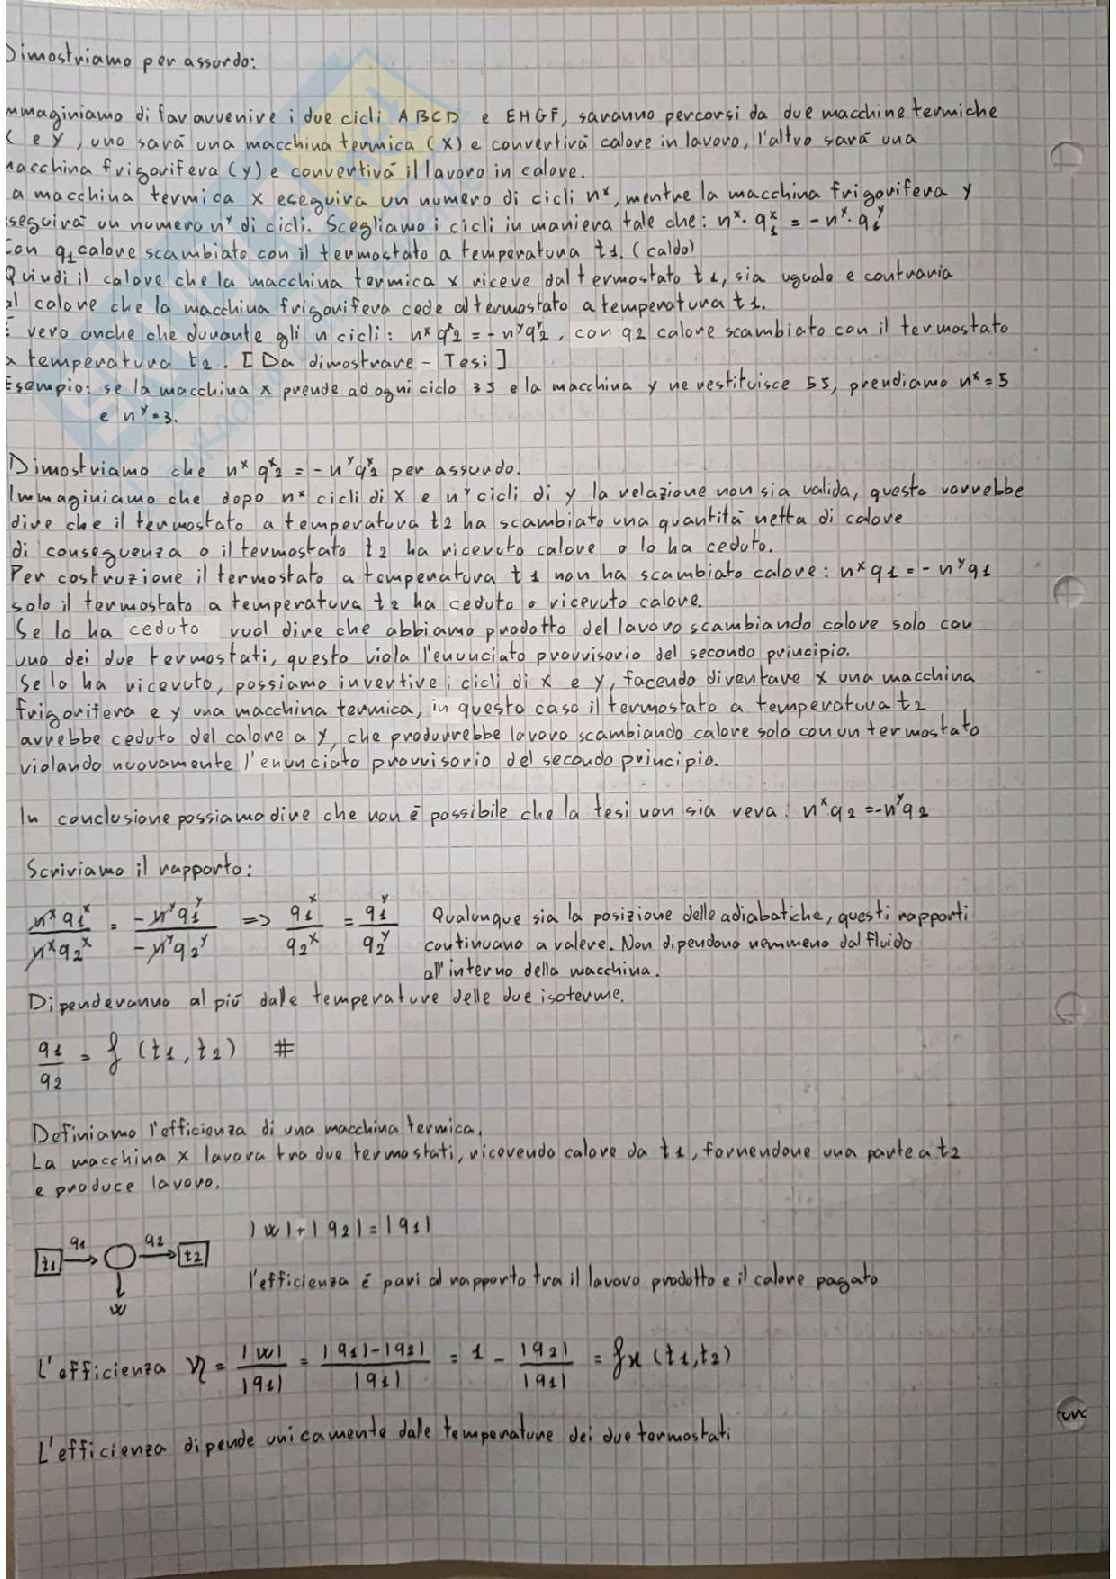 Dimostriamo per assurdo:
mmaginiamo di far avvenire i due cicli ABCD e EHGF, saranno percorsi da due macchine termiche
e y, uno sarà una macchina termica (x) e convertirà calore in lavoro, l'altro sarà una
macchina frigorifera (y) e convertirà il lavoro in calore.
a macchina termica x eseguirà un numero di cicli nˣ, mentre la macchina frigorifera y
seguirà un numero nʸ di cicli. Scegliamo i cicli in maniera tale che: nˣ · q₁ˣ = - nʸ · q₁ʸ
Con q₁ calore scambiato con il termostato a temperatura t1. (caldo)
Quindi il calore che la macchina termica x riceve dal termostato t1, sia uguale e contraria
al calore che la macchina frigorifera cede al termostato a temperatura t1.
È vero anche che durante gli n cicli: nˣ q₂ˣ = - nʸ q₂ʸ, con q2 calore scambiato con il termostato
a temperatura t2. [Da dimostrare - Tesi]
Esempio: se la macchina x prende ad ogni ciclo 3J e la macchina y ne restituisce 5J, prendiamo nˣ=5
e nʸ=3.
Dimostriamo che nˣ q₂ˣ = - nʸ q₂ʸ per assurdo.
Immaginiamo che dopo nˣ cicli di x e nʸ cicli di y la relazione non sia valida, questo vorrebbe
dire che il termostato a temperatura t2 ha scambiato una quantità netta di calore
di conseguenza o il termostato t2 ha ricevuto calore o lo ha ceduto.
Per costruzione il termostato a temperatura t1 non ha scambiato calore: nˣ q1 = - nʸ q1
solo il termostato a temperatura t2 ha ceduto o ricevuto calore.
Se lo ha ceduto vuol dire che abbiamo prodotto del lavoro scambiando calore solo con
uno dei due termostati, questo viola l'enunciato provvisorio del secondo principio.
Se lo ha ricevuto, possiamo invertire i cicli di x e y, facendo diventare x una macchina
frigorifera e y una macchina termica, in questo caso il termostato a temperatura t2
avrebbe ceduto del calore a y, che produrrebbe lavoro scambiando calore solo con un termostato
violando nuovamente l'enunciato provvisorio del secondo principio.
In conclusione possiamo dire che non è possibile che la tesi non sia vera: nˣ q2 = -nʸ q2
Scriviamo il rapporto:
nˣ q₁ˣ / nˣ q₂ˣ = -nʸ q₁ʸ / -nʸ q₂ʸ => q₁ˣ / q₂ˣ = q₁ʸ / q₂ʸ Qualunque sia la posizione delle adiabatiche, questi rapporti
continuano a valere. Non dipendono nemmeno dal fluido
all'interno della macchina.
Dipenderanno al più dalle temperature delle due isoterme.
q1 / q2 = f (t1, t2) #
Definiamo l'efficienza di una macchina termica.
La macchina x lavora tra due termostati, ricevendo calore da t1, fornendone una parte a t2
e produce lavoro.
|w|+|q2|=|q1|
t1 q1 q2 t2
w
l'efficienza è pari al rapporto tra il lavoro prodotto e il calore pagato
L'efficienza η = |w| / |q1| = |q1|-|q2| / |q1| = 1 - |q2| / |q1| = fx (t1,t2)
L'efficienza dipende unicamente dale temperature dei due termostati